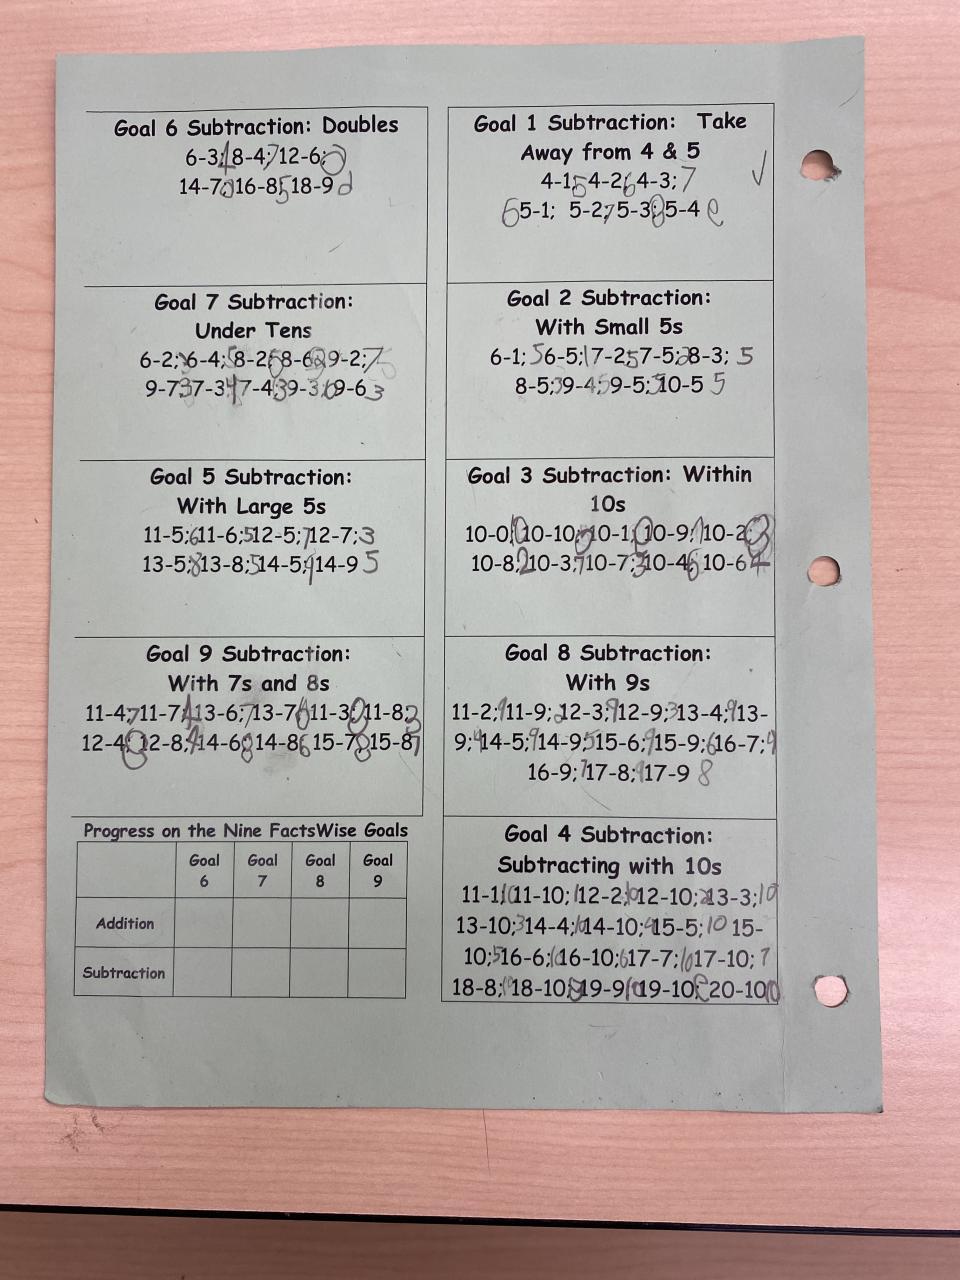 Goal 6 Subtraction: Doubles
6-3; 8-4;7 12-6;
14-7; 16-8;5 18-9
Goal 7 Subtraction:
Under Tens
6-2; 6-4; 8-2; 8-6; 9-2;7
9-7;3 7-3;4 7-4;3 9-3; 9-6 3
Goal 5 Subtraction:
With Large 5s
11-5;6 11-6;5 12-5;7 12-7;3
13-5;8 13-8;5 14-5;9 14-9 5
Goal 9 Subtraction:
With 7s and 8s
11-4;7 11-7;4 13-6;7 13-7;6 11-3; 11-8;3
12-4; 12-8;4 14-6;8 14-8;6 15-7;8 15-8;7
Progress on the Nine FactsWise Goals
Goal 6 Goal 7 Goal 8 Goal 9
Addition
Subtraction
Goal 1 Subtraction: Take
Away from 4 & 5
4-1;5 4-2;6 4-3;7
6 5-1; 5-2;7 5-3;8 5-4
Goal 2 Subtraction:
With Small 5s
6-1;5 6-5;1 7-2;5 7-5;2 8-3; 5
8-5;3 9-4;5 9-5; 10-5 5
Goal 3 Subtraction: Within
10s
10-0; 10-10; 10-1; 10-9;1 10-2;
10-8;2 10-3;7 10-7;3 10-4;6 10-6 4
Goal 8 Subtraction:
With 9s
11-2;9 11-9;2 12-3;9 12-9;3 13-4;9 13-
9;4 14-5;9 14-9;5 15-6;9 15-9;6 16-7;9
16-9;7 17-8;9 17-9 8
Goal 4 Subtraction:
Subtracting with 10s
11-1;10 11-10;1 12-2;10 12-10;2 13-3;10
13-10;3 14-4;10 14-10;4 15-5;10 15-
10;5 16-6;10 16-10;6 17-7;10 17-10;7
18-8;10 18-10;8 19-9;10 19-10; 20-10 10